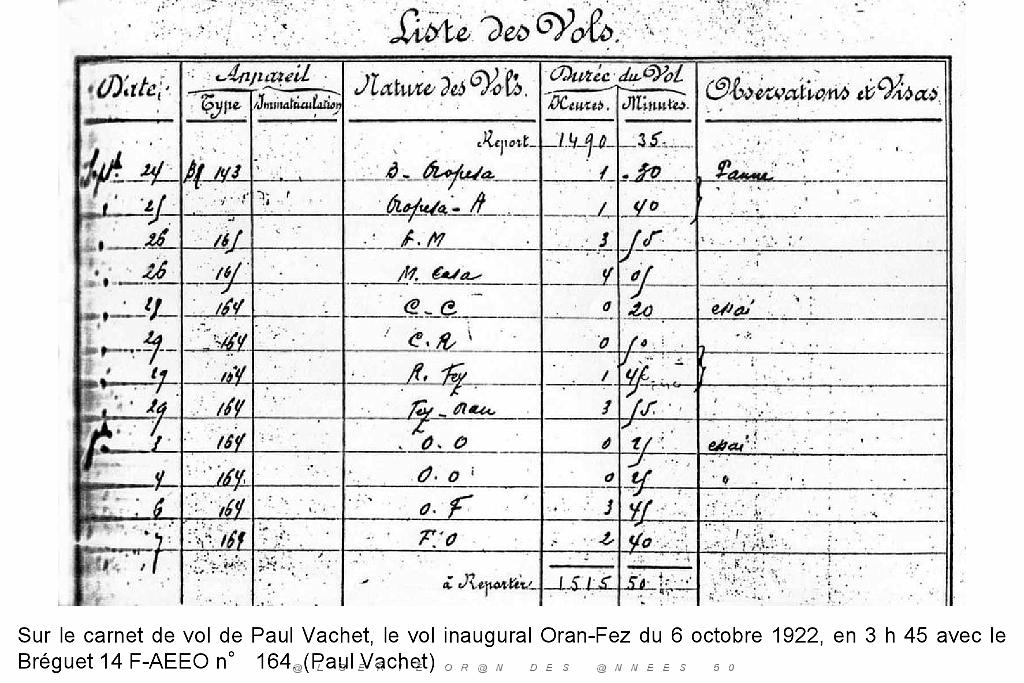 Liste des Vols.
Date. Appareil Nature des Vols. Durée du Vol Observations et Visas
Type Immatriculation Heures. Minutes.
Report 1490 35.
Sept. 24 Bg 143 B - Oropesa 1 - 30 Panne
" 25 Oropesa - A 1 40
" 26 165 A. M 3 55
" 26 165 M. Casa 4 05
" 28 164 C - C 0 20 essai
" 29 164 C. R 0 50
" 29 164 R. Fez 1 45
" 29 164 Fez - Oran 3 55
3 164 O. O 0 25 essai
4 164 O. O 0 25 "
6 164 O. F 3 45
7 164 F. O 2 40
à Reporter 1515 50
Sur le carnet de vol de Paul Vachet, le vol inaugural Oran-Fez du 6 octobre 1922, en 3 h 45 avec le
Bréguet 14 F-AEEO n° 164. (Paul Vachet)
OR@N DES @NNEES 50